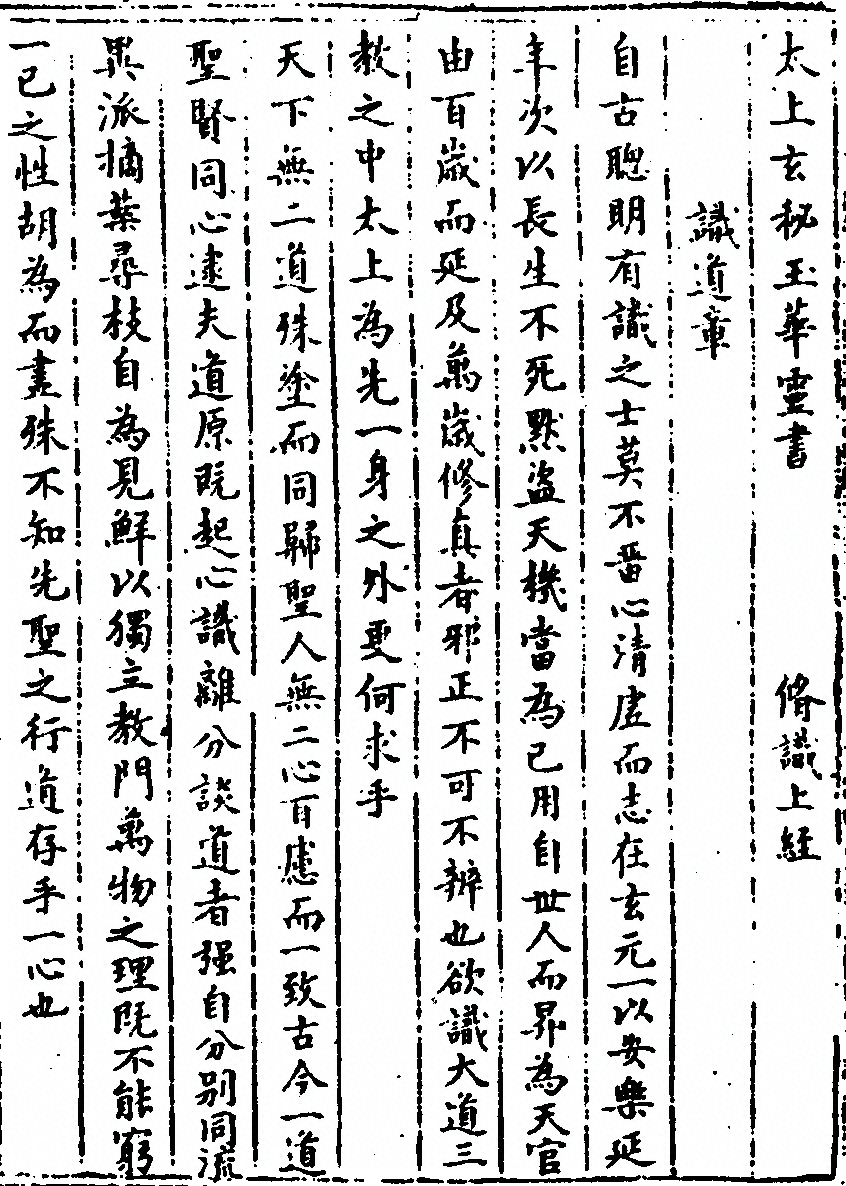 太上玄秘玉華靈書 脩識上經
識道章
自古聰明有識之士莫不畱心清虛而志在玄元一以安樂延
年次以長生不死默盜天機當為己用自世人而昇為天官
由百歲而延及萬歲修真者邪正不可不辨也欲識大道三
教之中太上為先一身之外更何求乎
天下無二道殊塗而同歸聖人無二心百慮而一致古今一道
聖賢同心逮夫道原既起心識離分談道者强自分别同流
異派摘葉尋枝自為見鮮以獨立教門萬物之理既不能窮
一己之性胡為而盡殊不知先聖之行道存乎一心也